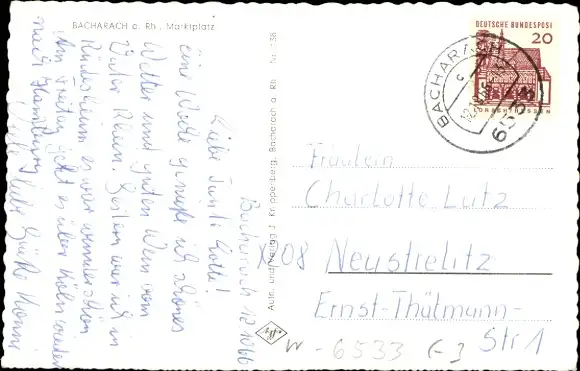 BACHARACH a. Rh., Marktplatz
Bacharach 12.10.66
Liebe Tante Lotte!
Eine Woche genieße ich schönes
Wetter und guten Wein vom
Vater Rhein. Gestern war ich in
Rüdesheim es war wunderschön
Am Freitag geht es über Köln wieder
nach Hamburg
Viele liebe Grüße
Aufn. und Verlag J. Knippenberg, Bacharach a. Rh.
DEUTSCHE BUNDESPOST
20
BACHARACH
6533
Fräulein
Charlotte Lutz
X 208 Neustrelitz
Ernst-Thälmann-
Str 1
W - 6533